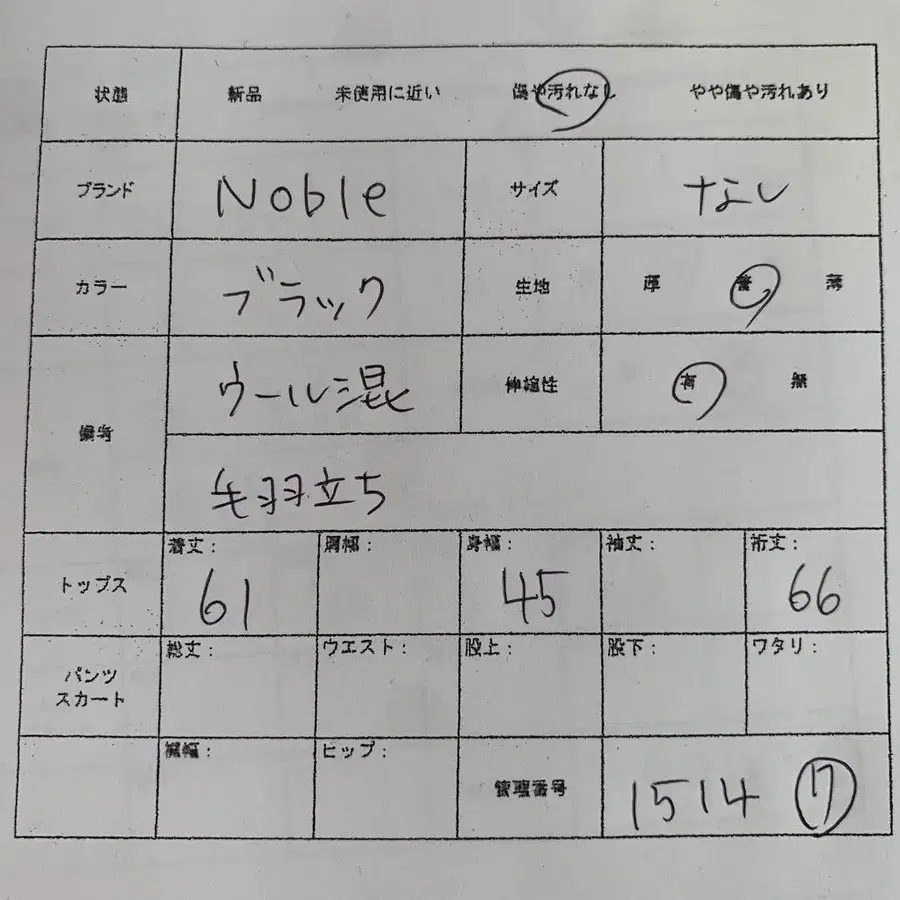 状態 新品 未使用に近い 傷や汚れなし やや傷や汚れあり
ブランド Noble サイズ なし
カラー ブラック 生地 厚 普 薄
備考 ウール混 伸縮性 有 無
毛羽立ち
トップス 着丈: 61 肩幅: 身幅: 45 袖丈: 裄丈: 66
パンツ スカート 総丈: ウエスト: 股上: 股下: ワタリ:
裾幅: ヒップ: 管理番号 1514 ⑰